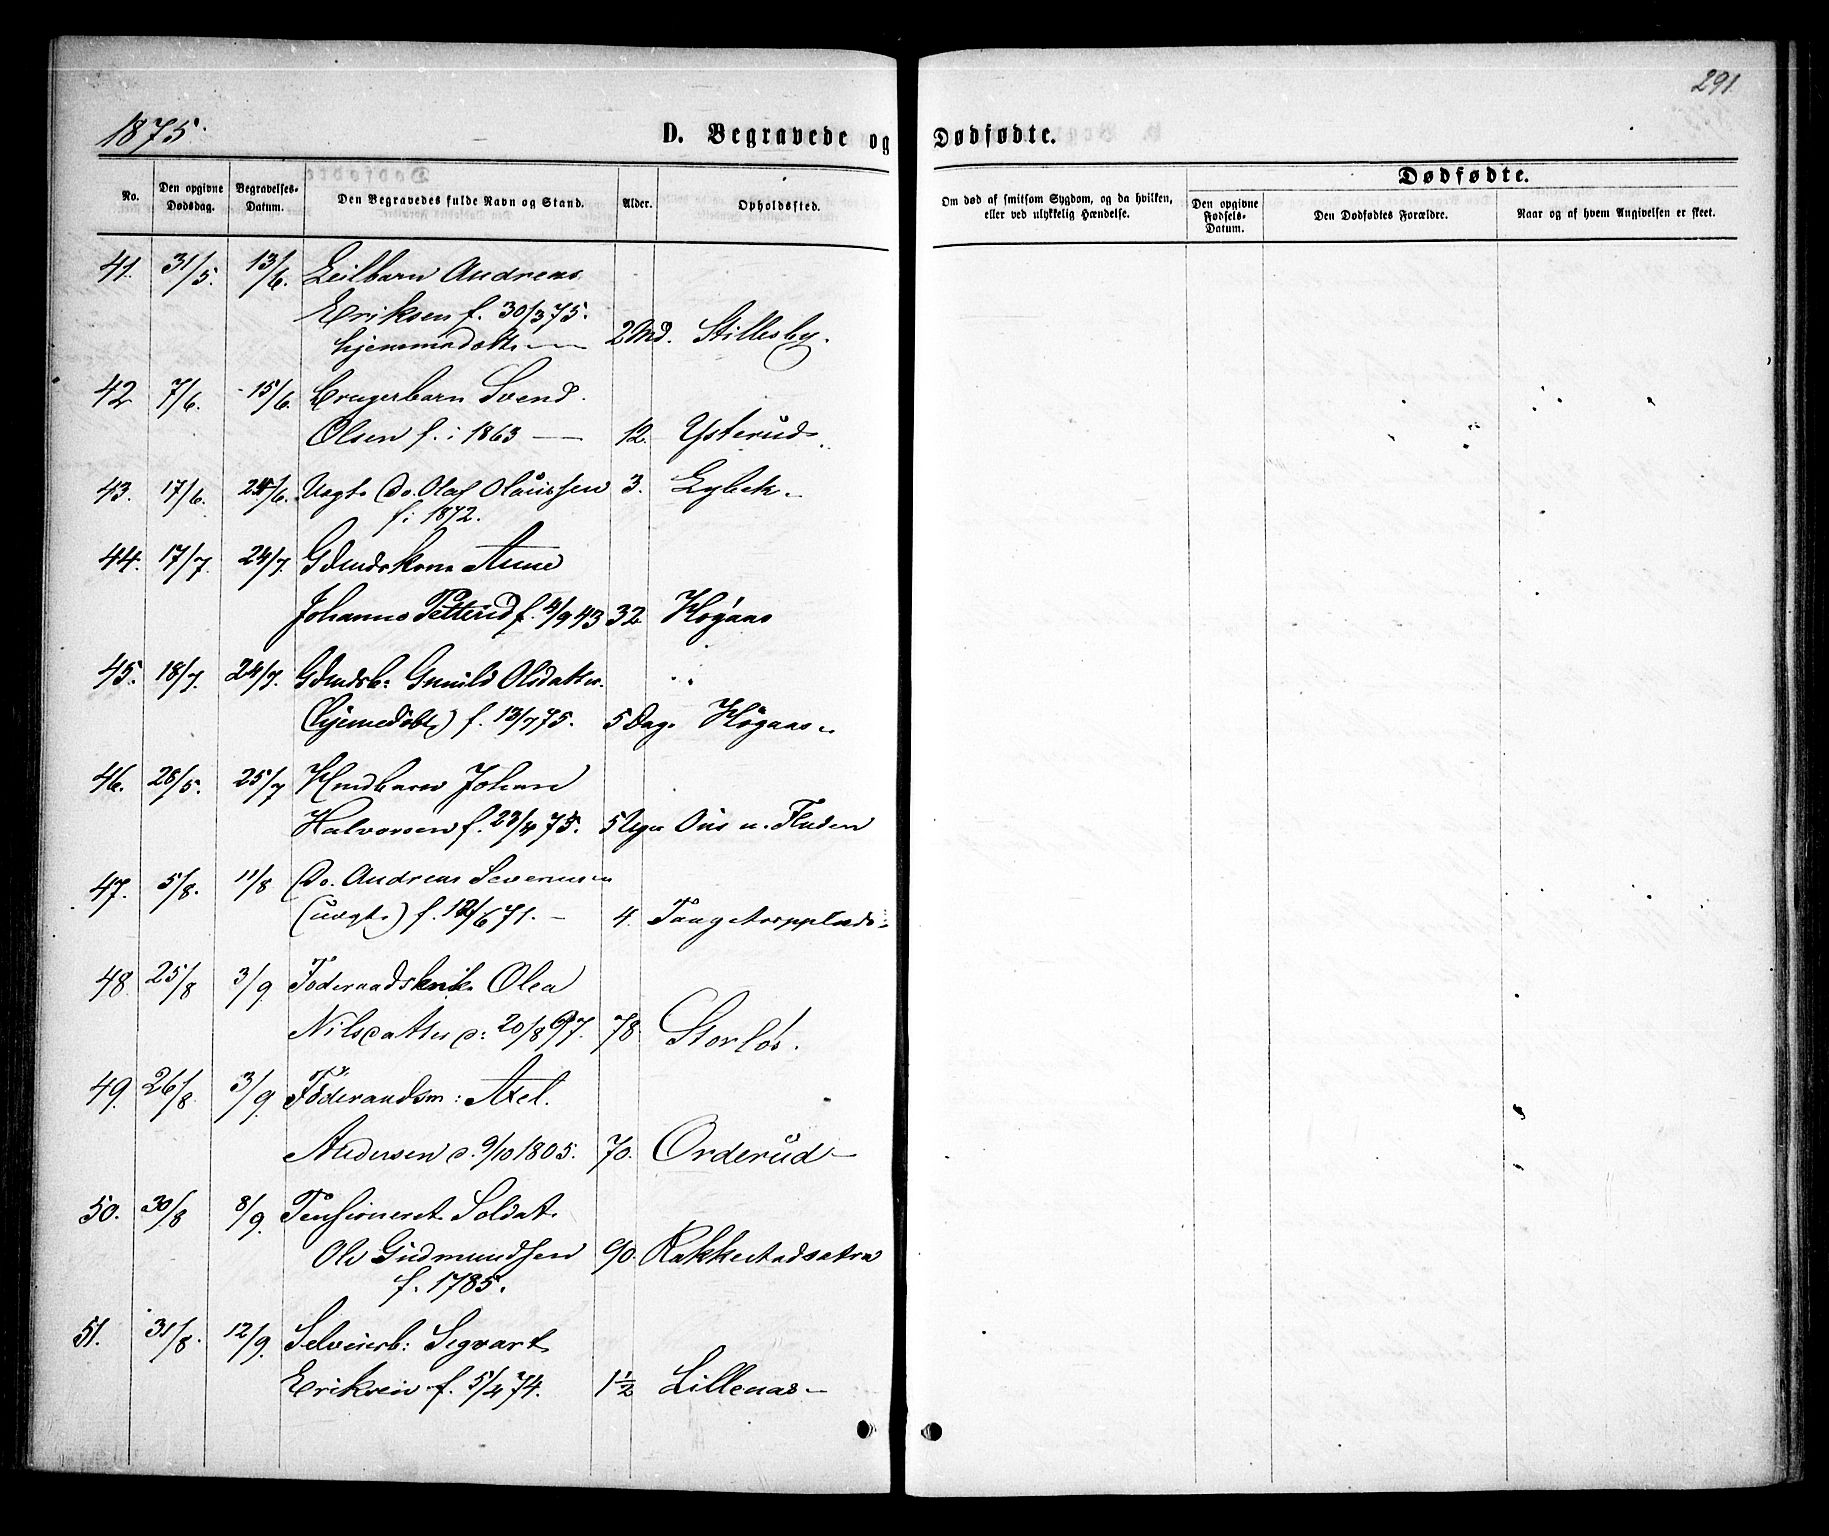 291
1875.
D. Begravede og Dødfødte.
No.
Den opgivne Dødsdag.
Begravelses-Datum.
Den Begravedes fulde Navn og Stand.
Alder.
Opholdssted.
Om død af smitsom Sygdom, og da hvilken, eller ved ulykkelig Hændelse.
Dødfødte.
Den opgivne Fødsels-Datum.
Den Dødfødtes Forældre.
Naar og af hvem Angivelsen er skeet.
41. 31/5. 13/6. Leilbarn Andreas
Eriksen f. 30/3 75.
hjemmedøbt. 2 Md. Stillesby.
42 7/6. 15/6. Brugerbarn Svend
Olsen f. i 1863 12. Ysterud
43. 17/6. 25/6. Uægt. Do. Olaf Olaussen 3. Lybek.
f. i 1872.
44. 17/7. 24/7. Gdmdskone Anne
Johanne Petterid f. 4/9 43 32 Høgaas
45. 18/7. 24/7. Gdmdsb: Gunild Olsdatter.
(hjemmedøbt) f. 13/7 75. 5 Dag. Høgaas
46. 28/5. 25/7 Hmdbarn Johan
Halvorsen f. 23/4 75. 5 Uger Ous u. Fladen
47. 5/8. 11/8 Do. Andreas Severinsen
(uægt.) f. 12/6 71. 4.
48. 25/8 3/9 Føderaads Olea
Nilsdatter d: 20/8 97. 78 Storløs.
49. 26/8 3/9. Føderaadsm: Axel
Andersen d. 9/10 1805. 70. Orderud
50. 30/8 8/9. Pensioneret Soldat
Ole Gudmundsen 90. Rakkestadsætra
f. 1785.
51. 31/8. 12/9. Selveierb: Segvart
Eriksen f. 5/4 74. 1½ Lillenas